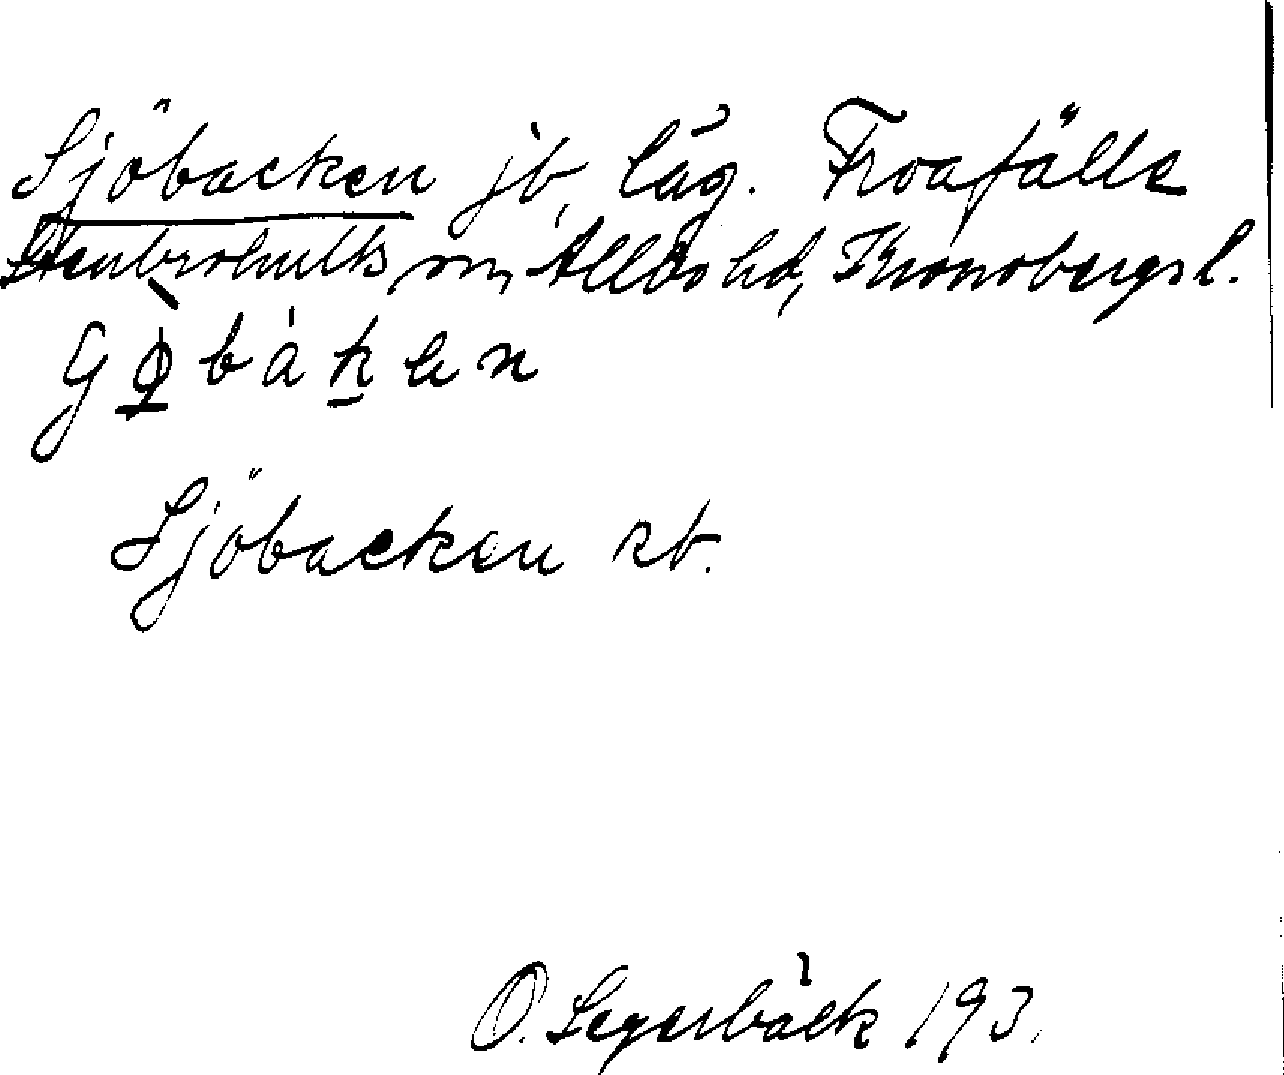 Sjöbacken jb, läg. Froafälle
Stenbrohults sn, Allbo hd, Kronobergs l.
Sjöbacken rt.
O. Segerbäck 193.